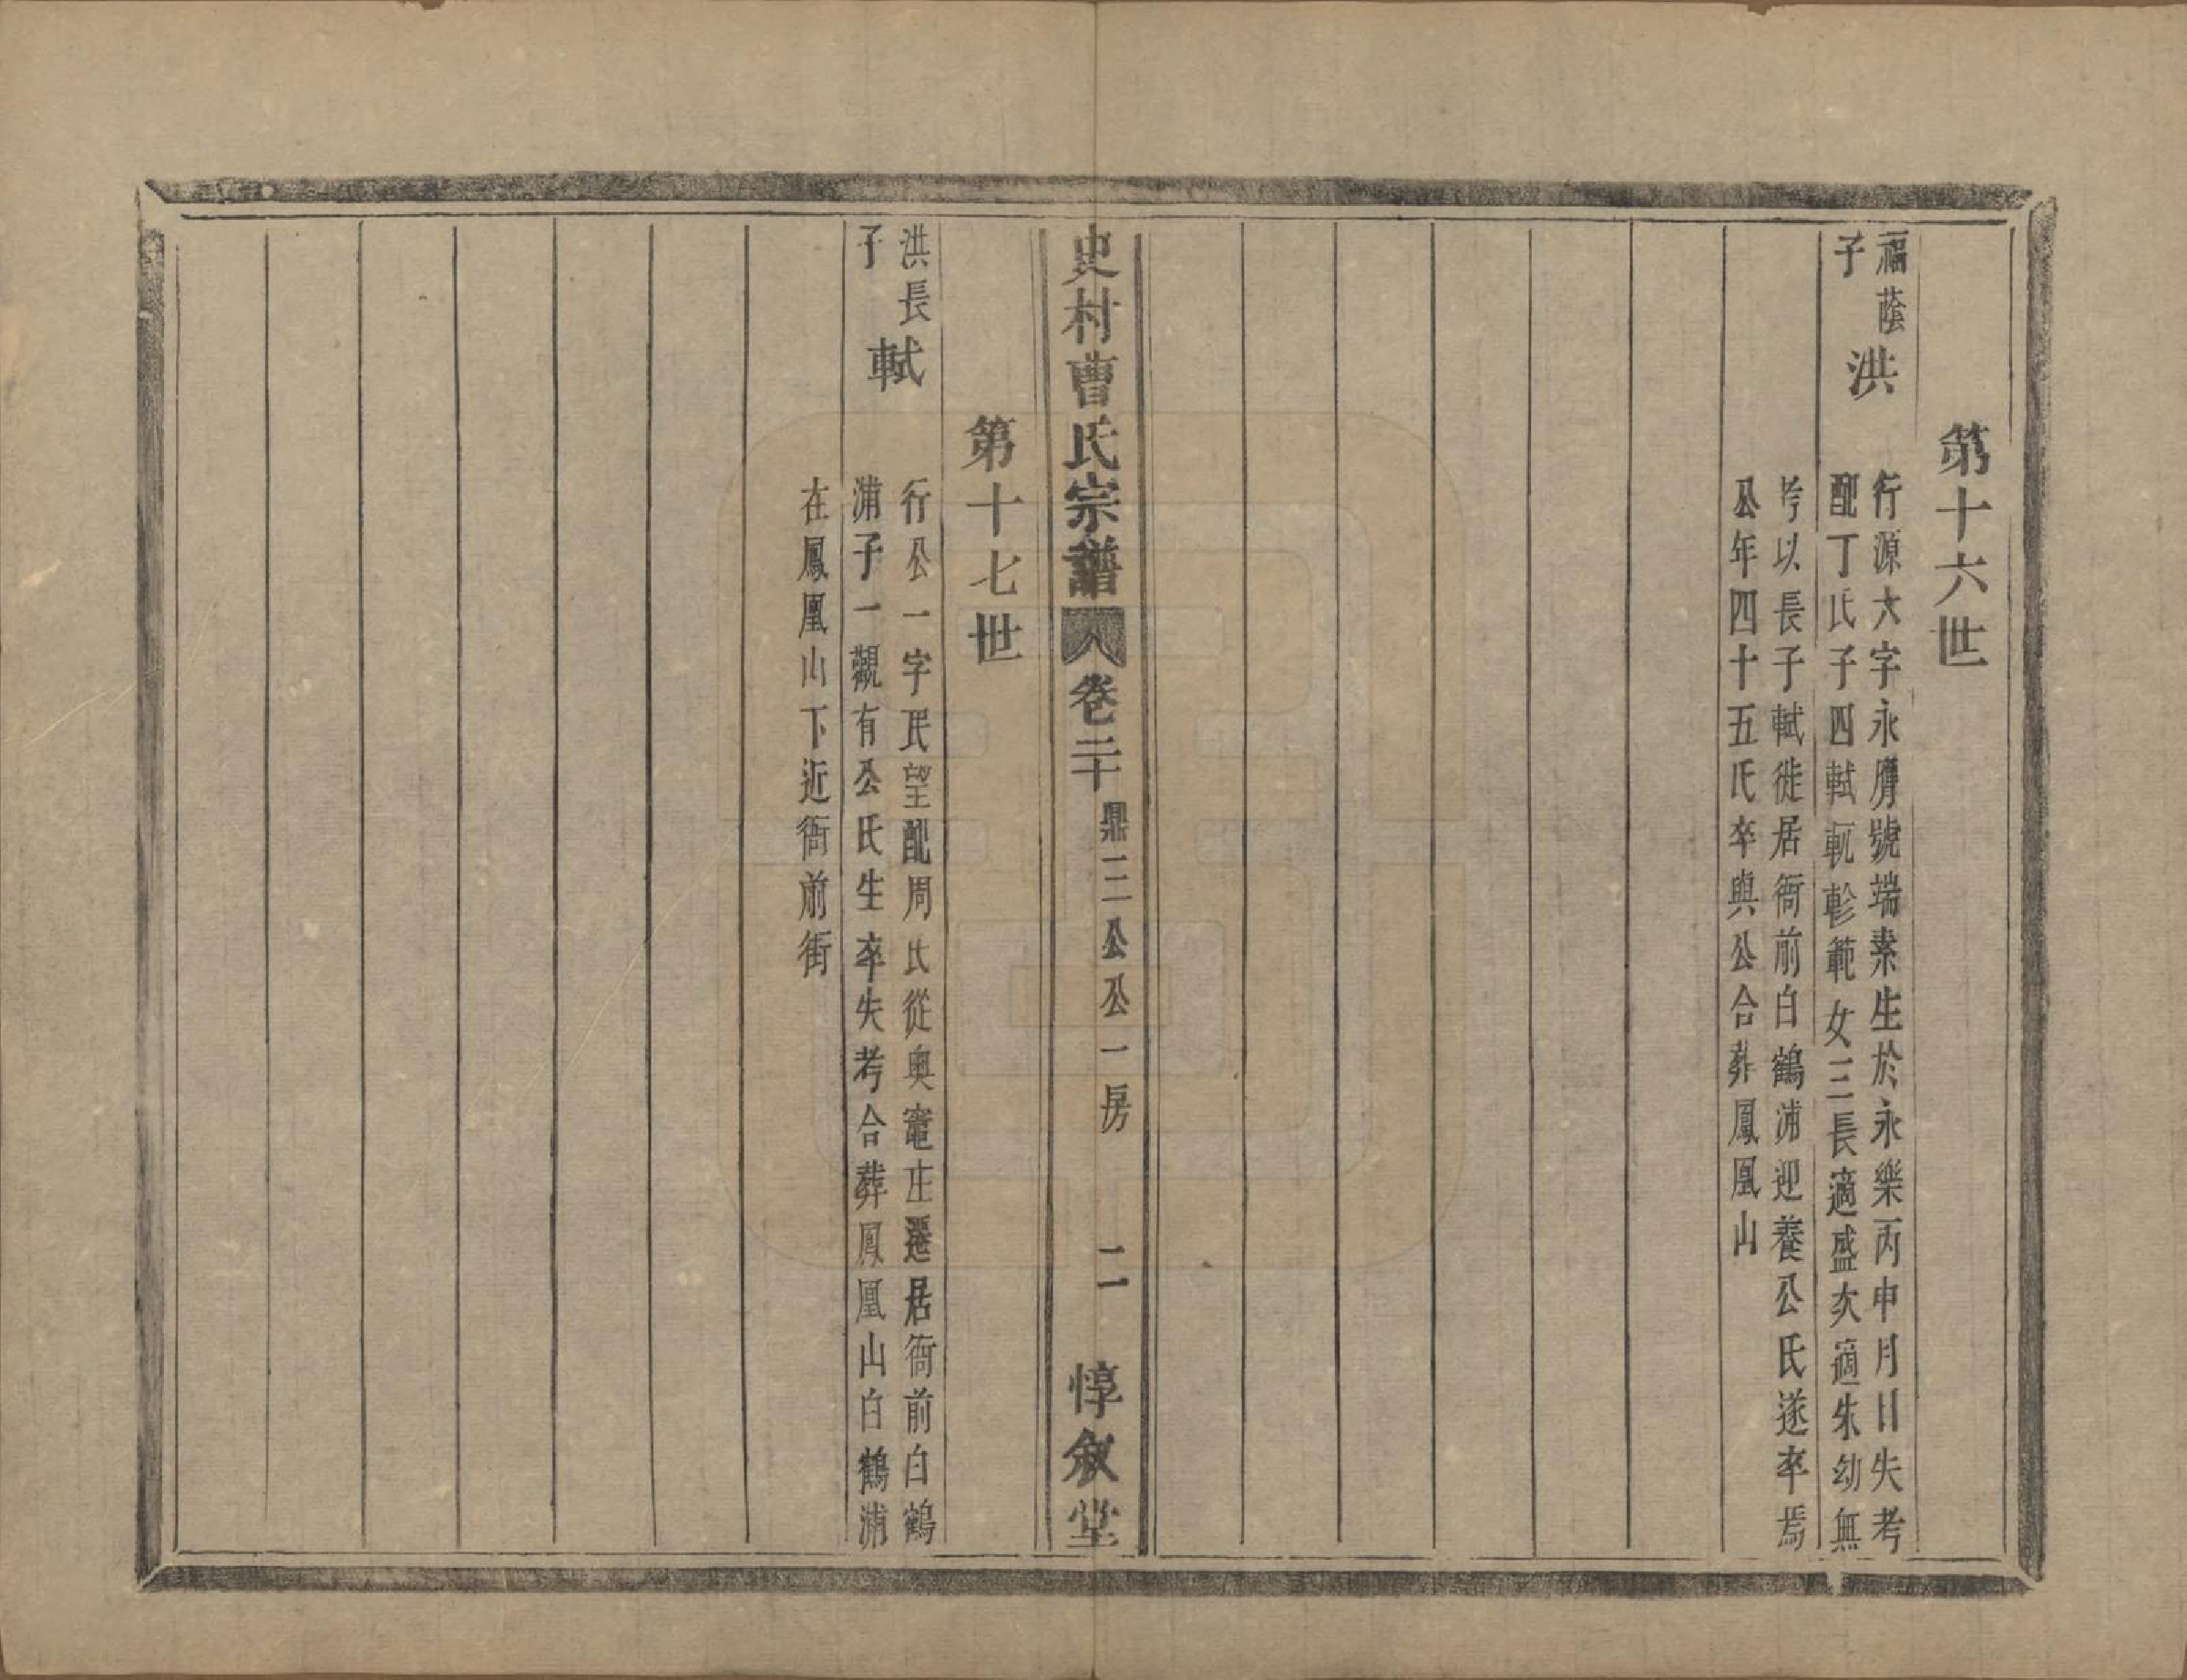 第十六世
福蔭
子
洪
行源大字永膺號端素生於永樂丙申月日失考
配丁氏子四軾軏軫範女三長適盛次適朱幼無
考以長子軾徙居衙前白鶴浦迎養公氏遂卒焉
公年四十五氏卒與公合葬鳳凰山
史村曹氏宗譜 卷二十 鼎三公公一房 二 惇敘堂
第十七世
洪長
子
軾
行公一字民望配周氏從奧竈庄遷居衙前白鶴
浦子一觀有公氏生卒失考合葬鳳凰山白鶴浦
在鳳凰山下近衙前街